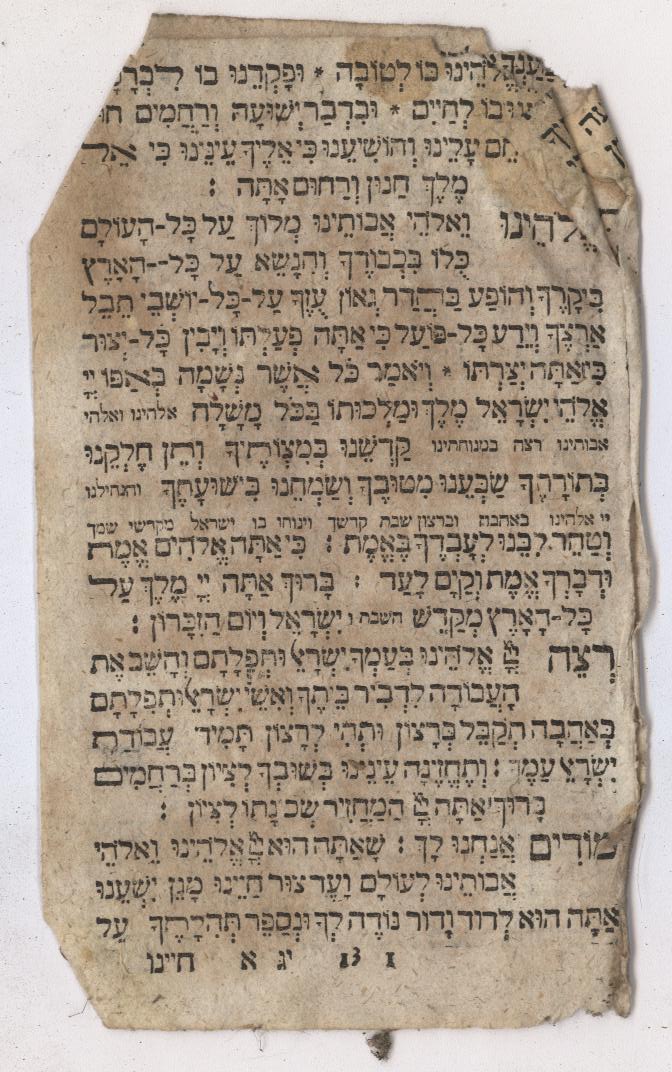 אֱלֹהֵינוּ בּוֹ לְטוֹבָה * וּפָקְדֵנוּ בוֹ לִבְרָכָה
בוֹ לְחַיִּים * וּבִדְבַר יְשׁוּעָה וְרַחֲמִים
עָלֵינוּ וְהוֹשִׁיעֵנוּ כִּי אֵלֶיךָ עֵינֵינוּ כִּי אֵל
מֶלֶךְ חַנּוּן וְרַחוּם אָתָּה :
אֱלֹהֵינוּ וֵאלֹהֵי אֲבוֹתֵינוּ מְלוֹךְ עַל כָּל-הָעוֹלָם
כֻּלּוֹ בִּכְבוֹדֶךָ וְהִנָּשֵׂא עַל כָּל--הָאָרֶץ
בִּיקָרֶךָ וְהוֹפַע בַּהֲדַר גְּאוֹן עֻזֶּךָ עַל-כָּל-יוֹשְׁבֵי תֵבֵל
אַרְצֶךָ וְיֵדַע כָּל-פּוֹעַל כִּי אַתָּה פְעַלְתּוֹ וְיָבִין כָּל-יְצוּר
כִּי אַתָּה יְצַרְתּוֹ * וְיֹאמַר כֹּל אֲשֶׁר נְשָׁמָה בְאַפּוֹ יְיָ
אֱלֹהֵי יִשְׂרָאֵל מֶלֶךְ וּמַלְכוּתוֹ בַּכֹּל מָשָׁלָה אלהינו ואלהי
אבותינו רצה במנוחתינו קַדְּשֵׁנוּ בְּמִצְוֹתֶיךָ וְתֵן חֶלְקֵנוּ
בְּתוֹרָתֶךָ שַׂבְּעֵנוּ מִטּוּבֶךָ וְשַׂמְּחֵנוּ בִּישׁוּעָתֶךָ והנחילנו
יי אלהינו באהבה וברצון שבת קדשך וינוחו בו ישראל מקדשי שמך
וְטַהֵר לִבֵּנוּ לְעָבְדְּךָ בֶּאֱמֶת : כִּי אַתָּה אֱלֹהִים אֱמֶת
וּדְבָרְךָ אֱמֶת וְקַיָּם לָעַד : בָּרוּךְ אַתָּה יְיָ מֶלֶךְ עַל
כָּל-הָאָרֶץ מְקַדֵּשׁ השבת ו יִשְׂרָאֵל וְיוֹם הַזִּכָּרוֹן :
רְצֵה יְיָ אֱלֹהֵינוּ בְּעַמְּךָ יִשְׂרָאֵל וּתְפִלָּתָם וְהָשֵׁב אֶת
הָעֲבוֹדָה לִדְבִיר בֵּיתֶךָ וְאִשֵּׁי יִשְׂרָאֵל וּתְפִלָּתָם
בְּאַהֲבָה תְקַבֵּל בְּרָצוֹן וּתְהִי לְרָצוֹן תָּמִיד עֲבוֹדַת
יִשְׂרָאֵל עַמֶּךָ : וְתֶחֱזֶינָה עֵינֵינוּ בְּשׁוּבְךָ לְצִיּוֹן בְּרַחֲמִים
בָּרוּךְ אַתָּה יְיָ הַמַּחֲזִיר שְׁכִינָתוֹ לְצִיּוֹן :
מוֹדִים אֲנַחְנוּ לָךְ : שָׁאַתָּה הוּא יְיָ אֱלֹהֵינוּ וֵאלֹהֵי
אֲבוֹתֵינוּ לְעוֹלָם וָעֶד צוּר חַיֵּינוּ מָגֵן יִשְׁעֵנוּ
אַתָּה הוּא לְדוֹר וָדוֹר נוֹדֶה לְּךָ וּנְסַפֵּר תְּהִלָּתֶךָ עַל
1 13 יג א חיינו